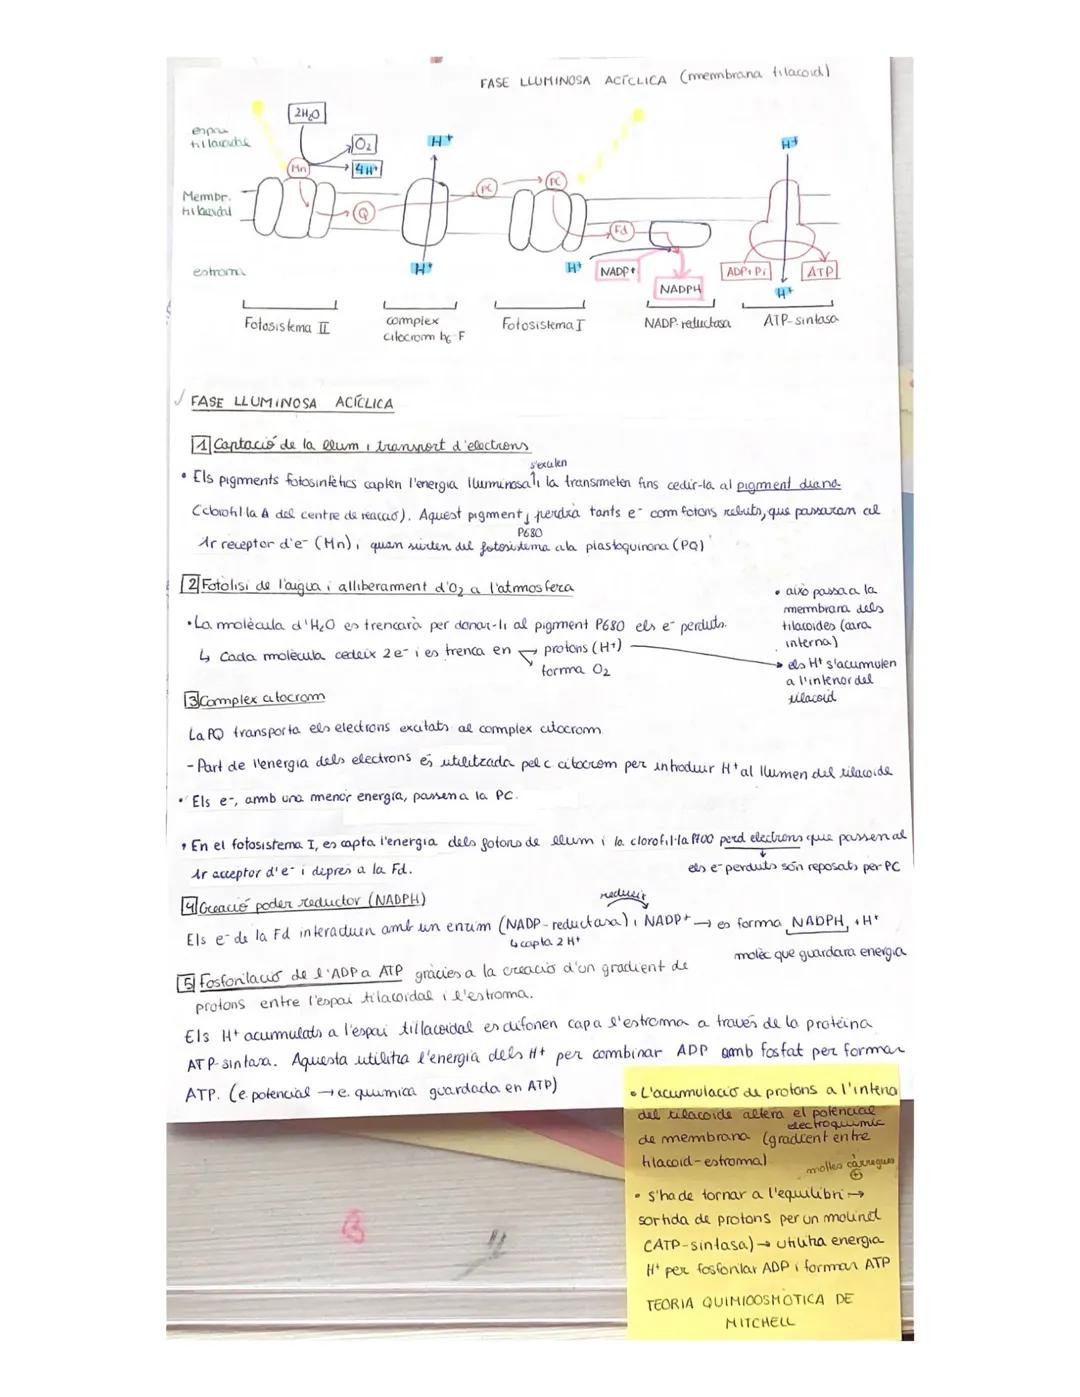 FASE LLUMINOSA ACÍCLICA (membrana tilacoid)
espai
til·lacoide
2H2O
O2
4H+
Mn
H+
H+
PC
PC
Membr.
tilacoidal
Q
Fd
estroma
H+
H+
NADP+
NADPH
ADP+Pi
ATP
H+
Fotosistema II
complex
citocrom b6-F
Fotosistema I
NADP-reductasa
ATP-sintasa
FASE LLUMINOSA ACÍCLICA
1 Captació de la llum i transport d'electrons
s'exciten
• Els pigments fotosintètics capten l'energia lluminosa i la transmeten fins cedir-la al pigment diana
(clorofil·la A del centre de reacció). Aquest pigment, perdrà tants e- com fotons rebuts, que passaran al
P680
1r receptor d'e- (Mn), i quan surten del fotosistema a la plastoquinona (PQ)
2 Fotòlisi de l'aigua i alliberament d'O2 a l'atmosfera
• La molècula d'H2O es trencarà per donar-li al pigment P680 els e- perduts.
↳ Cada molècula cedeix 2e- i es trenca en protons (H+)
forma O2
• això passa a la
membrana dels
tilacoides (cara
interna)
els H+ s'acumulen
a l'interior del
tilacoid
3 Complex citocrom
La PQ transporta els electrons excitats al complex citocrom
- Part de l'energia dels electrons és utilitzada pel c citocrom per introduir H+ al llumen del tilacoide
• Els e-, amb una menor energia, passen a la PC.
• En el fotosistema I, es capta l'energia dels fotons de llum i la clorofil·la P700 perd electrons que passen al
1r acceptor d'e- i deprés a la Fd.
els e- perduts són reposats per PC
4 Creació poder reductor (NADPH)
reducir
Els e- de la Fd interactuen amb un enzim (NADP-reductasa) i NADP+ → es forma NADPH, + H+
↳ capta 2 H+
molèc que guardara energia
5 Fosforilació de l'ADP a ATP gràcies a la creació d'un gradient de
protons entre l'espai tilacoidal i l'estroma.
Els H+ acumulats a l'espai til·lacoidal es difonen cap a l'estroma a través de la proteïna
ATP-sintasa. Aquesta utilitza l'energia dels H+ per combinar ADP amb fosfat per formar
ATP. (e. potencial → e. química guardada en ATP)
• L'acumulació de protons a l'interior
del tilacoide altera el potencial
electroquímic
de membrana (gradient entre
tilacoid-estroma)
moltes càrregues
+
• S'ha de tornar a l'equilibri →
sortida de protons per un molinet
(ATP-sintasa) → utilitza energia
H+ per fosforilar ADP i formar ATP
TEORIA QUIMIOOSMÒTICA DE
MITCHELL